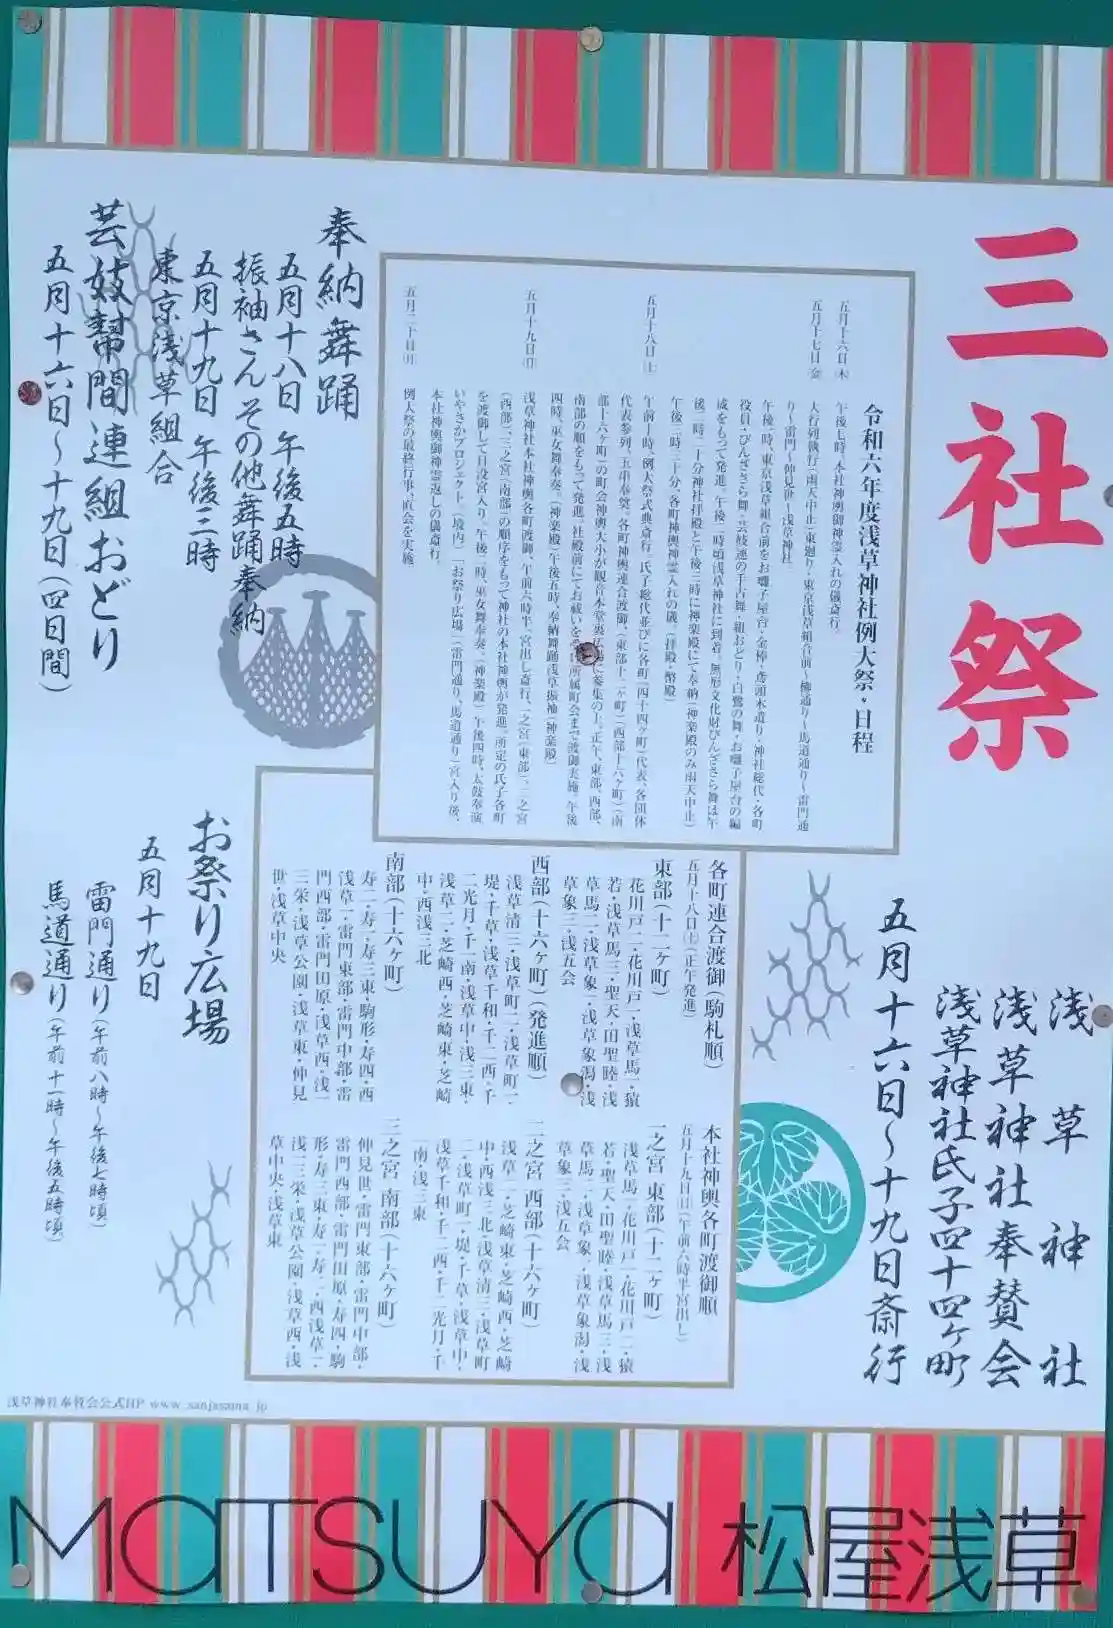 三社祭
浅草神社
浅草神社奉賛会
浅草神社氏子四十四ヶ町
五月十六日～十九日斎行
令和六年度浅草神社例大祭・日程
五月十六日(木)
午後七時、本社神輿御神霊入れの儀斎行。
五月十七日(金)
大行列執行(雨天中止)東廻り・東京浅草組合前～柳通り～馬道通り～雷門通
り～雷門～仲見世～浅草神社
午後一時、東京浅草組合前をお囃子屋台・金棒・鳶頭木遣り・神社総代・各町
役員・びんざさら舞・芸妓連の手古舞・組おどり・白鷺の舞・お囃子屋台の編
成をもって発進。午後二時頃浅草神社に到着。無形文化財びんざさら舞は午
後二時二十分神社拝殿と午後三時に神楽殿にて奉納(神楽殿のみ雨天中止)
午後三時三十分、各町神輿神霊入れの儀。(拝殿・幣殿)
五月十八日(土)
午前十時、例大祭式典斎行。氏子総代並びに各町(四十四ヶ町)代表、各団体
代表参列、玉串奉奠。各町神輿連合渡御、(東部十二ヶ町)(西部十六ヶ町)(南
部十六ヶ町)の町会神輿大小が観音本堂裏
参集の上、正午、東部、西部、
南部の順をもって発進。社殿前にてお祓いを
所属町会まで渡御実施。午後
四時、巫女舞奉奏。(神楽殿)午後五時、奉納舞踊浅草振袖(神楽殿)
五月十九日(日)
浅草神社本社神輿各町渡御、午前六時半、宮出し斎行、一之宮(東部)、二之宮
(西部)、三之宮(南部)の順序をもって神社の本社神輿が発進。所定の氏子各町
を渡御して日没宮入り。午後二時、巫女舞奉奏。(神楽殿)午後四時、太鼓奉演
いやさかプロジェクト。(境内)「お祭り広場」(雷門通り、馬道通り)宮入り後、
本社神輿御神霊返しの儀斎行。
五月二十日(月)
例大祭の最終行事、直会を実施
奉納舞踊
五月十八日 午後五時
振袖さん その他舞踊奉納
五月十九日 午後二時
東京浅草組合
芸妓幇間連組おどり
五月十六日～十九日(四日間)
各町連合渡御(駒札順)
五月十八日(土)(正午発進)
東部(十二ヶ町)
花川戸二・花川戸一・浅草馬一・猿
若・浅草馬三・聖天・田聖睦・浅
草馬二・浅草象一・浅草象潟・浅
草象三・浅五会
西部(十六ヶ町)(発進順)
浅草清三・浅草町二・浅草町一・
堤・千草・浅草千和・千二西・千
二光月・千一南・浅草中・浅三東・
浅草二・芝崎西・芝崎東・芝崎
中・西浅三北
南部(十六ヶ町)
寿一・寿二・寿三東・駒形・寿四・西
浅草一・雷門東部・雷門中部・雷
門西部・雷門田原・浅草西・浅一
三栄・浅草公園・浅草東・仲見
世・浅草中央
本社神輿各町渡御順
五月十九日(日)(午前六時半宮出し)
一之宮 東部(十二ヶ町)
浅草馬一・花川戸一・花川戸二・猿
若・聖天・田聖睦・浅草馬三・浅
草馬二・浅草象一・浅草象潟・浅
草象三・浅五会
二之宮 西部(十六ヶ町)
浅草二・芝崎東・芝崎西・芝崎
中・西浅三北・浅草清三・浅草町
二・浅草町一・堤・千草・浅草中・
浅草千和・千二西・千二光月・千
一南・浅三東
三之宮 南部(十六ヶ町)
仲見世・雷門東部・雷門中部・
雷門西部・雷門田原・寿四・駒
形・寿三東・寿一・寿二・西浅草一・
浅一三栄・浅草公園・浅草西・浅
草中央・浅草東
お祭り広場
五月十九日
雷門通り(午前八時～午後七時頃)
馬道通り(午前十一時～午後五時頃)
浅草神社奉賛会公式HP www.sanjasama.jp
MATSUYA 松屋浅草